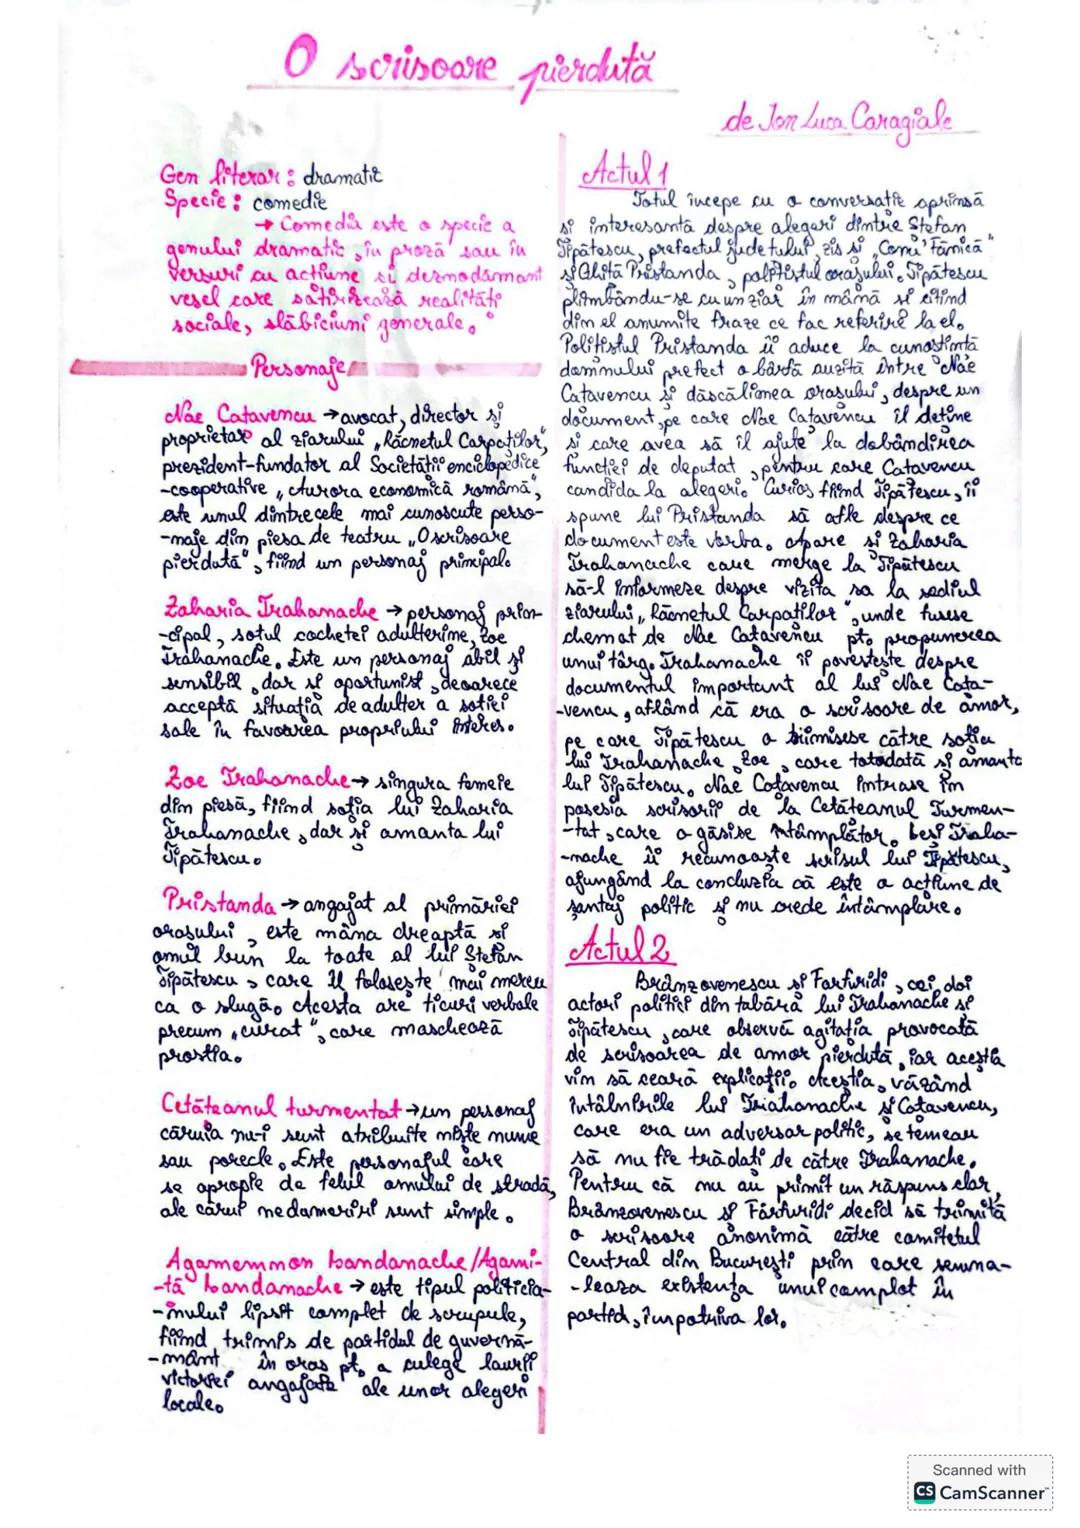 O scrisoare pierdută
de Ion Luca Caragiale
Gen literar: dramatic
Specie: comedie
→ Comedia este o specie a
genului dramatic, în proză sau în
versuri cu acțiune și deznodământ
vesel care satirizează realități
sociale, slăbiciuni generale.
Personaje
Nae Catavencu → avocat, director și
proprietar al ziarului „Răcnetul Carpaților”,
prezident-fundator al Societății enciclopedice
-cooperative „Aurora economică română”,
este unul dintre cele mai cunoscute perso-
-naje din piesa de teatru „O scrisoare
pierdută”, fiind un personaj principal.
Zaharia Trahanache → personaj prin-
-cipal, soțul cochetei adulterine, Zoe
Trahanache. Este un personaj abil și
sensibil, dar și oportunist, deoarece
acceptă situația de adulter a soției
sale în favoarea propriului interes.
Zoe Trahanache → singura femeie
din piesă, fiind soția lui Zaharia
Trahanache, dar și amanta lui
Tipătescu.
Pristanda → angajat al primăriei
orașului, este mâna dreaptă și
omul bun la toate al lui Ștefan
Tipătescu, care îl folosește mai mereu
ca o slugă. Acesta are ticuri verbale
precum „curat”, care maschează
prostia.
Cetățeanul turmentat → un personaj
căruia nu-i sunt atribuite niște nume
sau porecle. Este personajul care
se apropie de felul omului de stradă,
ale cărui nedumeriri sunt simple.
Agamemnon Dandanache/Agami-
-tă Dandanache → este tipul politicia-
-nului lipsit complet de scrupule,
fiind trimis de partidul de guvernă-
-mânt în oraș pt. a culege laurii
victoriei angajate ale unor alegeri
locale.
Actul 1
Totul începe cu o conversație aprinsă
și interesantă despre alegeri dintre Ștefan
Tipătescu, prefectul județului, zis și „Conu' Fănică”
și Ghiță Pristanda, polițistul orașului. Tipătescu
plimbându-se cu un ziar în mână și citind
din el anumite fraze ce fac referire la el.
Polițistul Pristanda îi aduce la cunoștință
domnului prefect o bârfă auzită între Nae
Catavencu și dăscălimea orașului, despre un
document, pe care Nae Catavencu îl deține
și care avea să îl ajute la dobândirea
funcției de deputat, pentru care Catavencu
candida la alegeri. Curios fiind Tipătescu, îi
spune lui Pristanda să afle despre ce
document este vorba. Apare și Zaharia
Trahanache care merge la Tipătescu
să-l informeze despre vizita sa la sediul
ziarului „Răcnetul Carpaților”, unde fusese
chemat de Nae Catavencu pt. propunerea
unui târg. Trahanache îi povestește despre
documentul important al lui Nae Cata-
-vencu, aflând că era o scrisoare de amor,
pe care Tipătescu o trimisese către soția
lui Trahanache, Zoe, care totodată și amanta
lui Tipătescu. Nae Catavencu intrase în
posesia scrisorii de la Cetățeanul Turmen-
-tat, care o găsise întâmplător. Deși Traha-
-nache îi recunoaște scrisul lui Tipătescu,
ajungând la concluzia că este o acțiune de
șantaj politic și nu crede întâmplare.
Actul 2
Brânzovenescu și Farfuridi, cei doi
actori politici din tabără lui Trahanache și
Tipătescu, care observă agitația provocată
de scrisoarea de amor pierdută, iar aceștia
vin să ceară explicații. Aceștia, văzând
întâlnirile lui Trahanache și Catavencu,
care era un adversar politic, se temeau
să nu fie trădați de către Trahanache.
Pentru că nu au primit un răspuns clar,
Brânzovenescu și Farfuridi decid să trimită
o scrisoare anonimă către comitetul
Central din București prin care semna-
-leaza existența unui complot în
partid, împotriva lor.
Scanned with
CS CamScanner